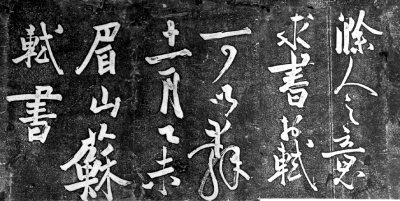 滁人之意
求書於軾
可以辭
十一月乙未
眉山蘇
軾書